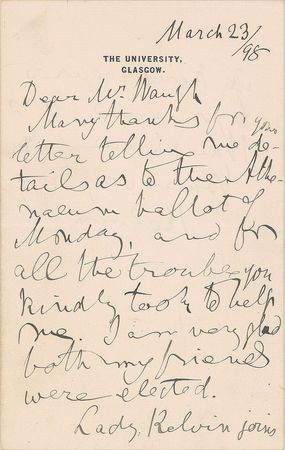 March 23/98
THE UNIVERSITY,
GLASGOW.
Dear Mr Waugh
Many thanks for your
letter telling me de-
tails as to the Athe-
naeum ballot of
Monday, and for
all the trouble you
kindly took to help
me. I am very glad
both my friends
were elected.
Lady Kelvin joins